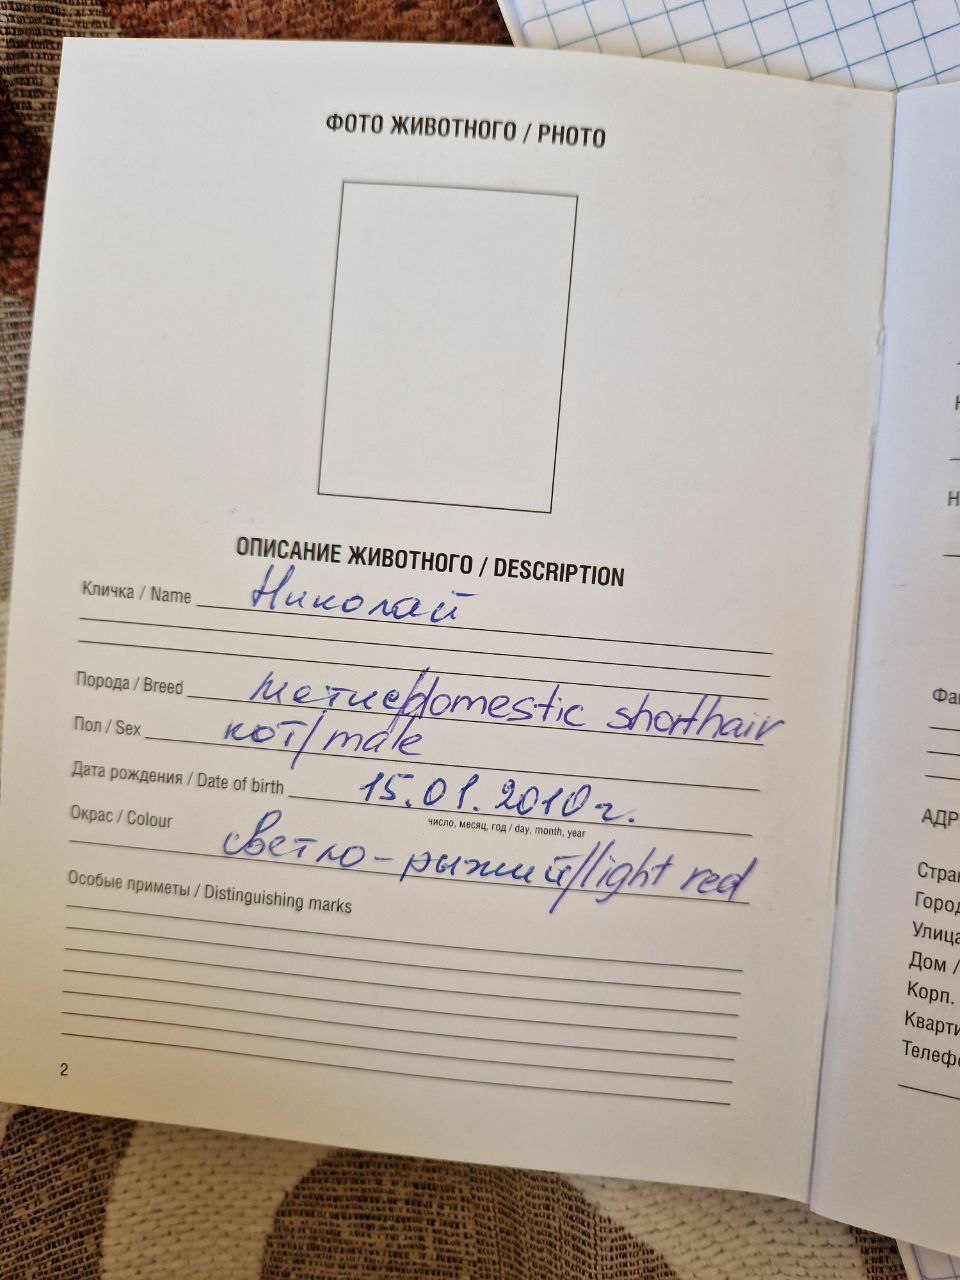 ФОТО ЖИВОТНОГО / PHOTO
ОПИСАНИЕ ЖИВОТНОГО / DESCRIPTION
Кличка / Name Николай
Порода / Breed метис/domestic shorthair
Пол / Sex кот/male
Дата рождения / Date of birth 15.01.2010г.
число, месяц, год / day, month, year
Окрас / Colour светло-рыжий/light red
Особые приметы / Distinguishing marks
2
АДР
Дом /
Корп.